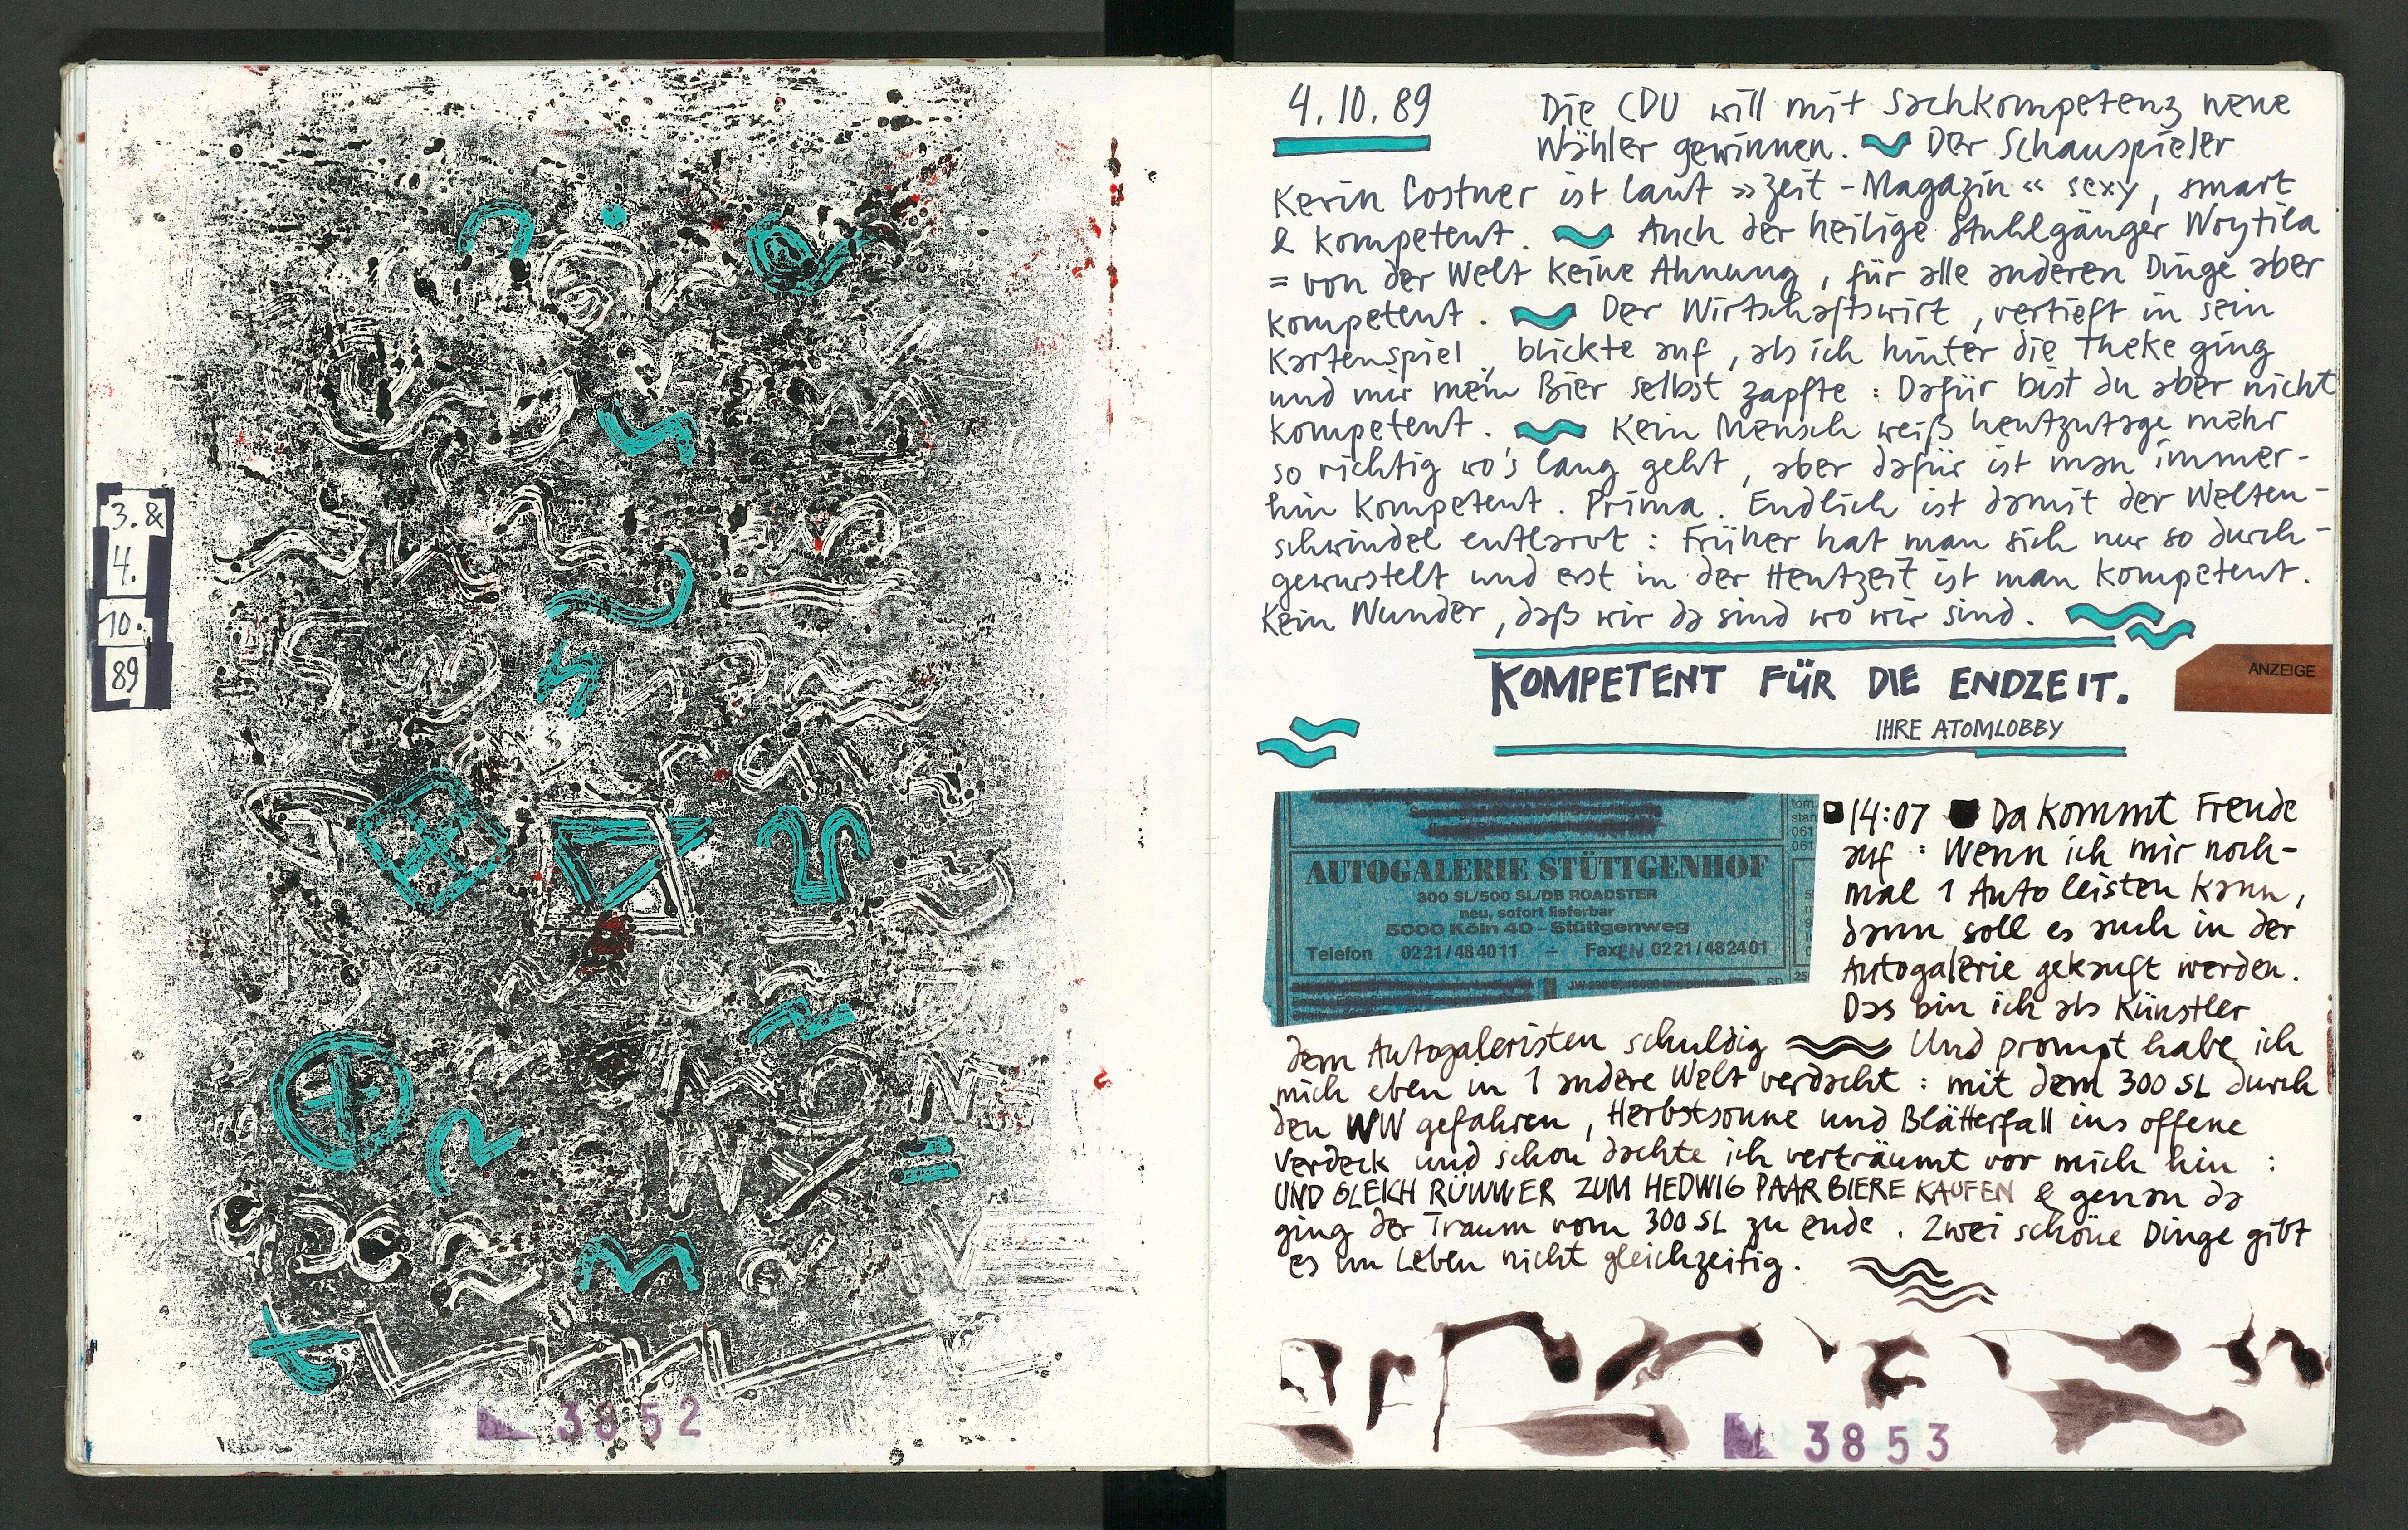 3. &
4.
10.
89
3852
4.10.89
Die CDU will mit Sachkompetenz neue
Wähler gewinnen. Der Schauspieler
Kevin Costner ist laut »Zeit-Magazin« sexy, smart
& kompetent. Auch der heilige Stuhlgänger Woytila
= von der Welt keine Ahnung, für alle anderen Dinge aber
kompetent. Der Wirtschaftswirt, vertieft in sein
Kartenspiel, blickte auf, als ich hinter die Theke ging
und mir mein Bier selbst zapfte: Dafür bist du aber nicht
kompetent. Kein Mensch weiß heutzutage mehr
so richtig wo's lang geht, aber dafür ist man immer-
hin kompetent. Prima. Endlich ist damit der Welten-
schwindel entlarvt: Früher hat man sich nur so durch-
gewurstelt und erst in der Heutzeit ist man kompetent.
Kein Wunder, daß wir da sind wo wir sind.
KOMPETENT FÜR DIE ENDZEIT.
ANZEIGE
IHRE ATOMLOBBY
AUTOGALERIE STÜTTGENHOF
300 SL/500 SL/DB ROADSTER
neu, sofort lieferbar
5000 Köln 40 – Stüttgenweg
Telefon 0221/484011 – Fax 0221/482401
14:07 Da kommt Freude
auf: Wenn ich mir noch-
mal 1 Auto leisten kann,
dann soll es auch in der
Autogalerie gekauft werden.
Das bin ich als Künstler
dem Autogaleristen schuldig Und prompt habe ich
mich eben in 1 andere Welt verdacht: mit dem 300 SL durch
den WW gefahren, Herbstsonne und Blätterfall ins offene
Verdeck und schon dachte ich verträumt vor mich hin:
UND GLEICH RÜWWER ZUM HEDWIG PAAR BIERE KAUFEN & genau da
ging der Traum vom 300 SL zu ende. Zwei schöne Dinge gibt
es im Leben nicht gleichzeitig.
3853